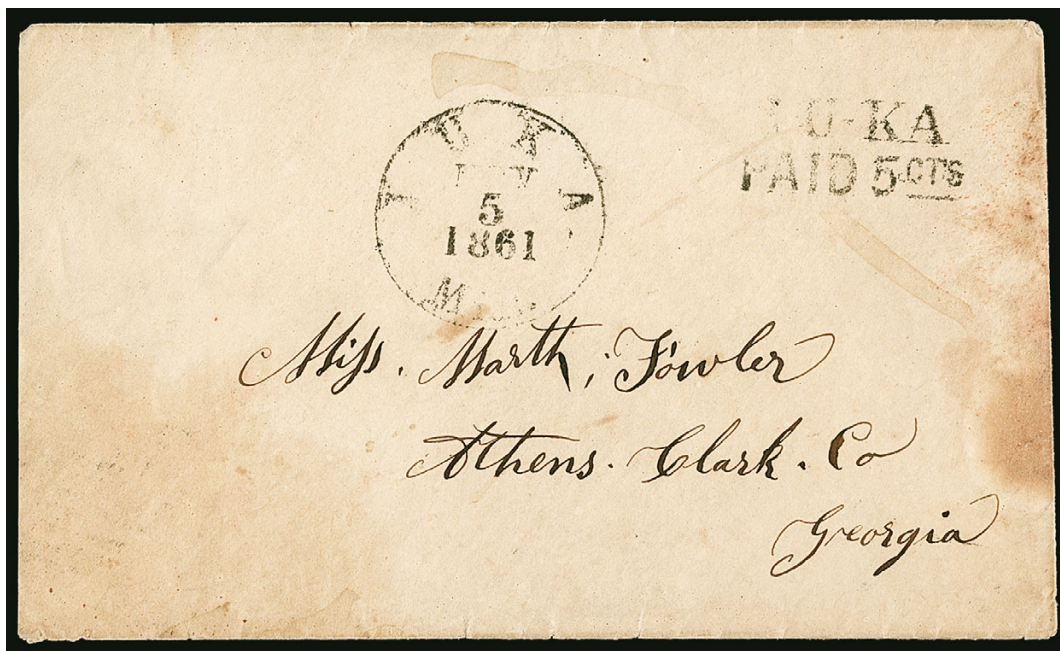 IUKA
5
1861
Miss.
I-U-KA
PAID 5 CTS
Miss. Marth, Fowler
Athens. Clark. Co
Georgia